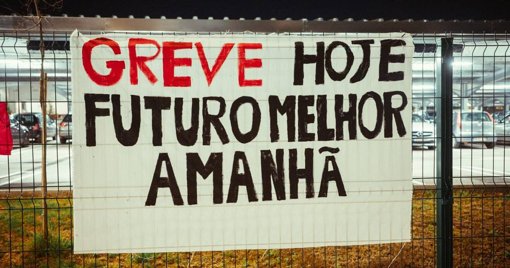 GREVE HOJE
FUTURO MELHOR
AMANHÃ